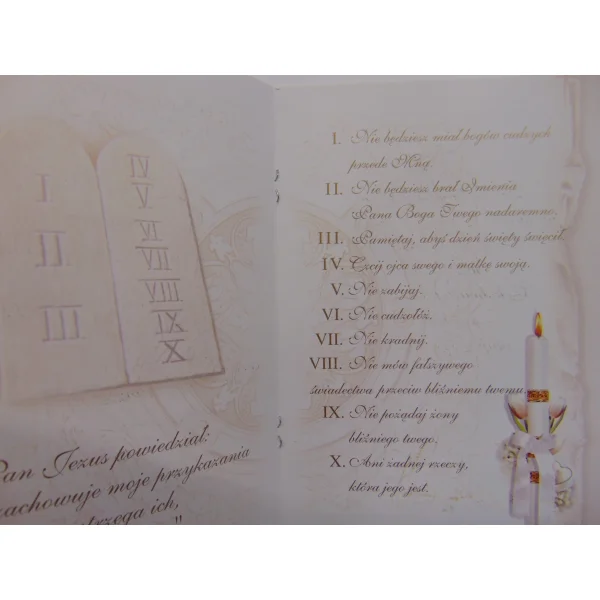 I
II
III
IV
V
VI
VII
VIII
IX
X
Pan Jezus powiedział:
zachowuje moje przykazania
strzega ich,
I. Nie będziesz miał bogów cudzych
przede Mną.
II. Nie będziesz brał Imienia
Pana Boga Twego nadaremno.
III. Pamiętaj, abyś dzień święty święcił.
IV. Czcij ojca swego i matkę swoją.
V. Nie zabijaj.
VI. Nie cudzołóż.
VII. Nie kradnij.
VIII. Nie mów fałszywego
świadectwa przeciw bliźniemu twemu.
IX. Nie pożądaj żony
bliźniego twego.
X. Ani żadnej rzeczy,
która jego jest.